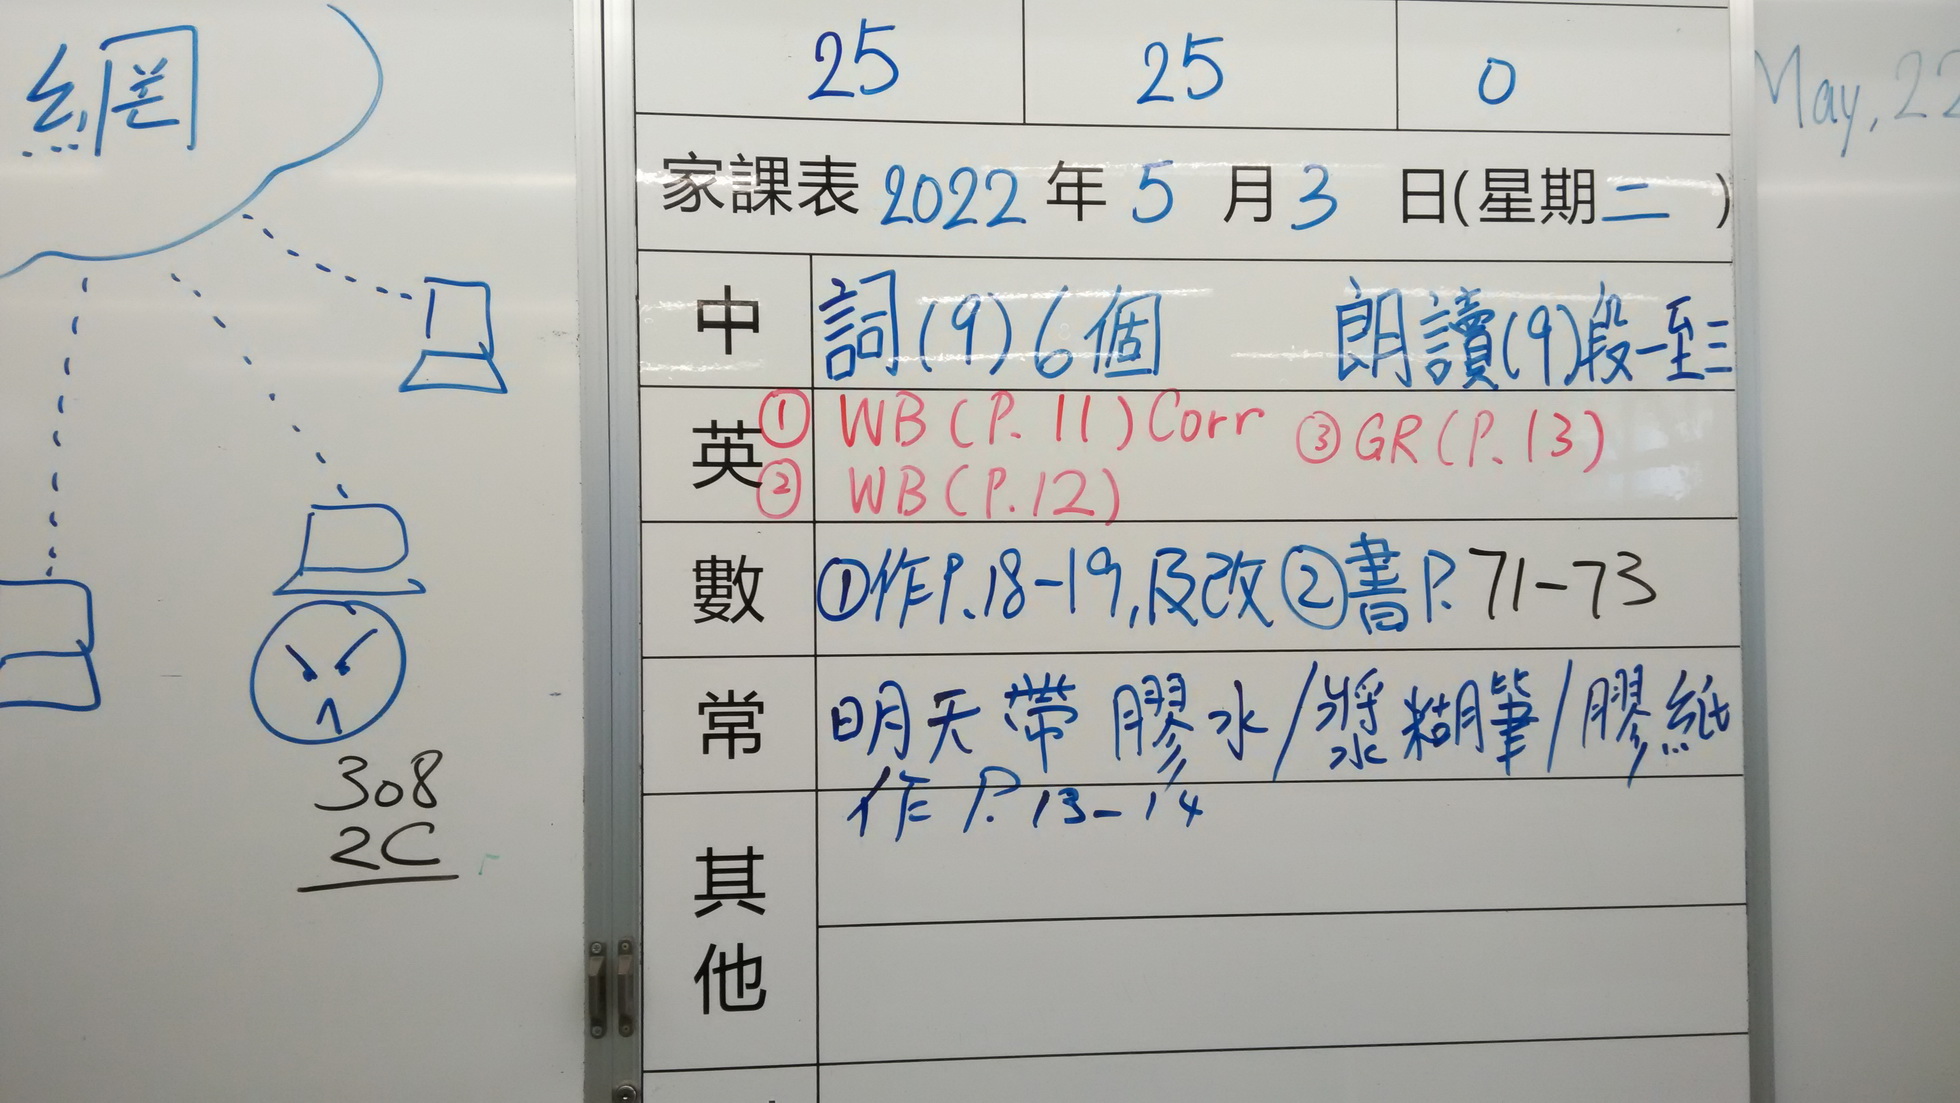 網
308
2C
25 25 0
家課表 2022 年 5 月 3 日(星期二)
中 詞(9)6個 朗讀(9)段一至三
英 ① WB(P.11)Corr ③GR(P.13)
② WB(P.12)
數 ①作P.18-19,及改 ②書P.71-73
常 明天帶膠水/漿糊筆/膠紙
作 P.13-14
其他
May, 22